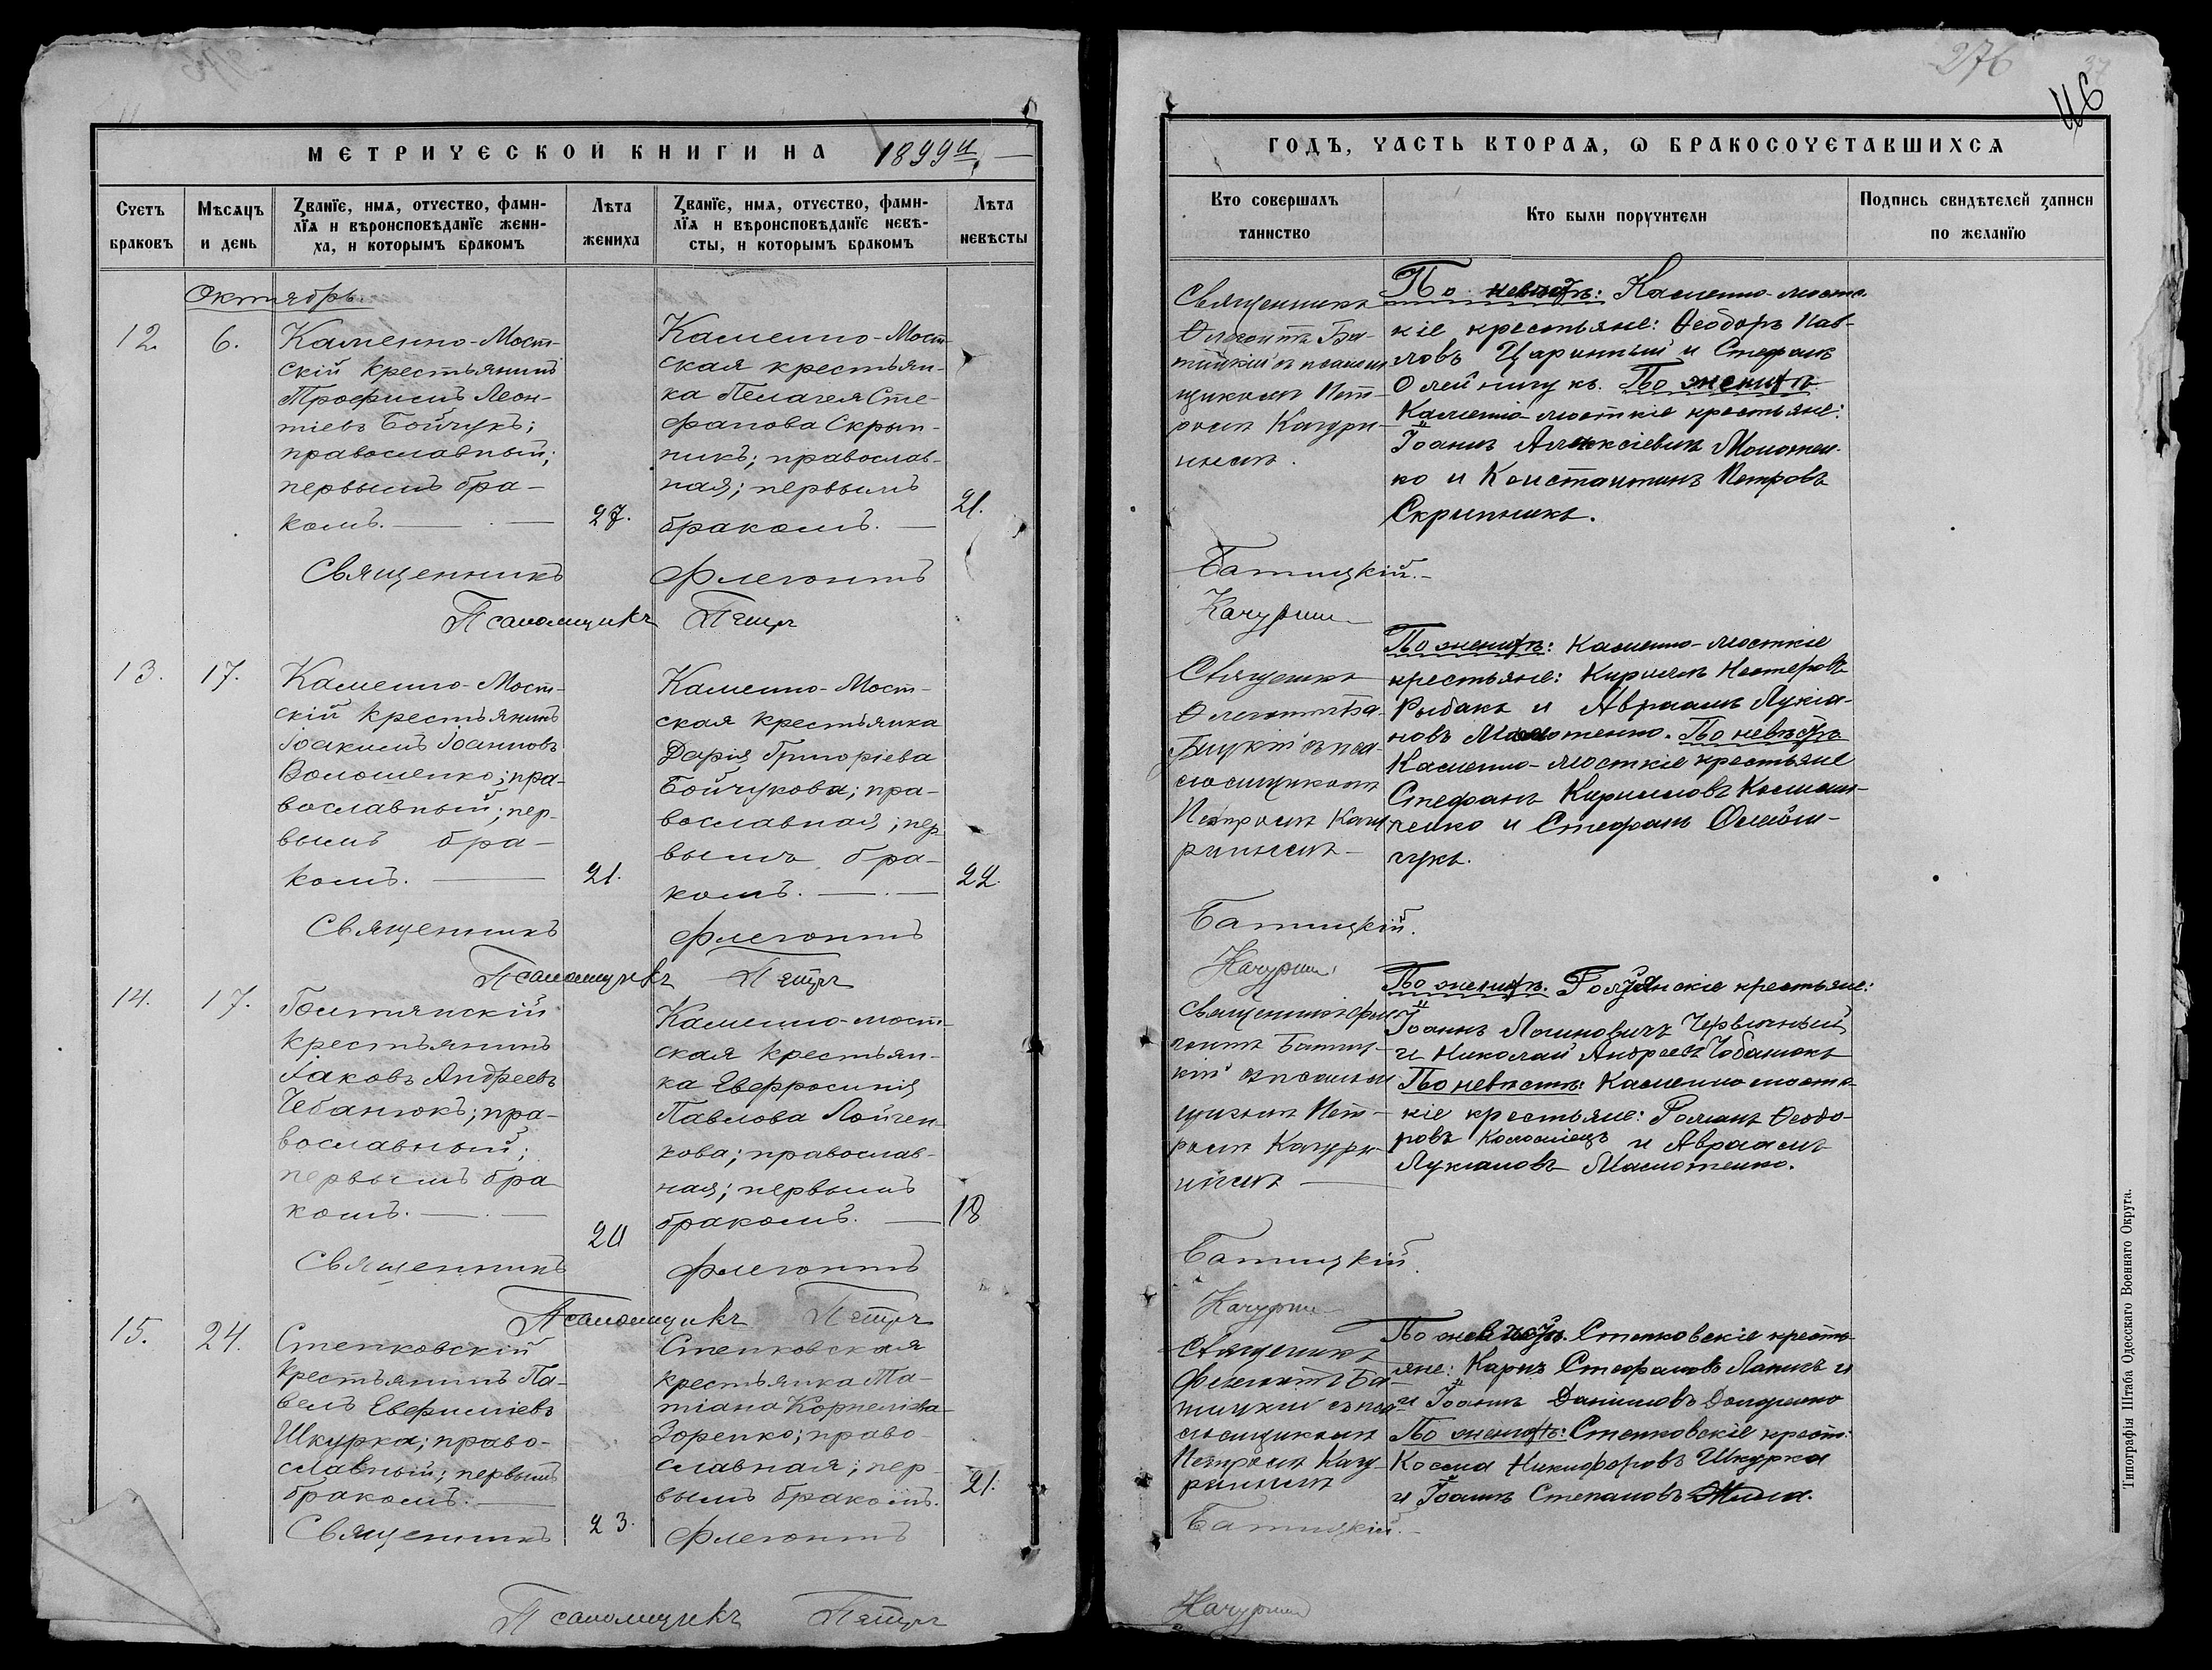 МЕТРИЧЕСКОЙ КНИГИ НА 1899й
Счетъ браковъ
Мѣсяцъ и день
Званїе, имя, отчество, фами-
лїя и вѣроисповѣданїе жени-
ха, и которымъ бракомъ
Лѣта жениха
Званїе, имя, отчество, фами-
лїя и вѣроисповѣданїе невѣ-
сты, и которымъ бракомъ
Лѣта невѣсты
Октябрь.
12.
6.
Каменно-Мост-
скій крестьянинъ
Трофимъ Леон-
тіевъ Бойчукъ;
православный;
первымъ бра-
комъ.
27.
Каменно-Мост-
ская крестьян-
ка Пелагея Сте-
фанова Скрып-
никъ; православ-
ная; первымъ
бракомъ.
21.
Священникъ Флегонтъ
Псаломщикъ Петръ
13.
17.
Каменно-Мост-
скій крестьянинъ
Іоакимъ Іоанновъ
Волошенко; пра-
вославный; пер-
вымъ бра-
комъ.
21.
Каменно-Мост-
ская крестьянка
Дарія Григоріева
Бойчукова; пра-
вославная; пер-
вымъ бра-
комъ.
22.
Священникъ Флегонтъ
Псаломщикъ Петръ
14.
17.
крестьянинъ
Іаковъ Андреевъ
Чебанюкъ; пра-
вославный;
первымъ бра
комъ.
Каменно-мост-
ская крестьян-
ка Евфросинія
Павлова Лойчен-
кова; православ-
ная; первымъ
бракомъ.
18
Священникъ Флегонтъ
Псаломщикъ Петръ
15.
24.
Степковскій
крестьянинъ Па-
велъ Евфиміевъ
Шкурка; право-
славный; первымъ
бракомъ.
23.
Степковская
крестьянка Та-
тіана Корнеліева
Зоренко; право-
славная; пер-
вымъ бракомъ.
21.
Священникъ Флегонтъ
Псаломщикъ Петръ
276
46
ГОДЪ, ЧАСТЬ ВТОРАЯ, Ѡ БРАКОСОЧЕТАВШИХСЯ
Кто совершалъ таинство
Кто были поручители
Подпись свидѣтелей записи
по желанїю
Священникъ
Флегонтъ Ба-
тицкій съ псаломщ
щикомъ Пет-
ромъ Качури-
нымъ.
По невѣстѣ: Каменно-мостс.
кіе крестьяне: Ѳеодоръ Пав-
ловъ Царинный и Стефанъ
Олейничукъ. По женихѣ
Каменно-мосткіе крестьяне:
Іоаннъ Алексіевичъ
ко и Константинъ Петровъ
Скрипникъ.
Батицкій.
Качуринъ
Священикъ
Флегонтъ Ба-
тицкій съ пса-
ломщикомъ
Петромъ Качу-
ринымъ
По женихѣ: Каменно-мосткіе
крестьяне: Кириллъ Нестеровъ
Рыбакъ и Авраамъ Лукіа-
новъ. По невѣстѣ
Каменно-мосткіе крестьяне
Стефанъ Кирилловъ
и Стефанъ Олейни-
чукъ.
Батицкій.
Качуринъ
Священникъ Фле
гонтъ Батиц-
кій съ псалом
щикомъ Пет-
ромъ Качури-
нымъ
По женихѣ. крестьяне:
Іоаннъ Червичный
и Николай Андреевъ Чобанюкъ
По невѣстѣ: Каменно мостс
кіе крестьяне: Романъ Ѳеодо-
ровъ Коломіецъ и Авраамъ
Лукіановъ
Батицкій.
Качуринъ
Священикъ
Флегонтъ Ба-
тицкій съ пса-
ломщикомъ
Петромъ Качу-
ринымъ
По невѣстѣ. Степковскіе кресть-
яне: Карпъ Стефановъ и
и Іоаннъ Даниловъ
По женихѣ: Степковскіе крест:
Косма Никифоровъ Шкурка
и Іоаннъ Степановъ
Батицкій.
Качуринъ
Типографія Штаба Одесскаго Военнаго Округа.